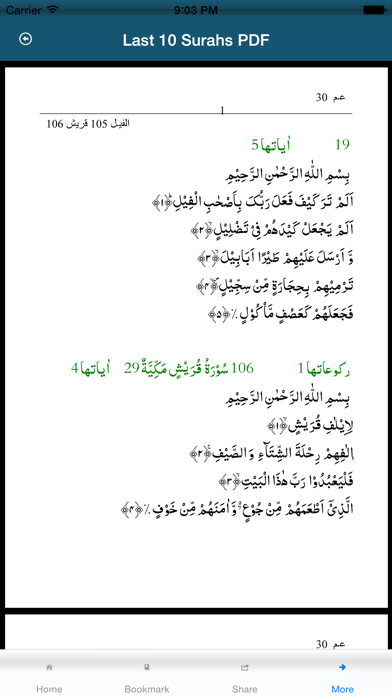 Carrier 9:03 PM
Last 10 Surahs PDF
عم 30
1
الفيل 105 قريش 106
19 اٰياتها 5
بِسْمِ اللّٰهِ الرَّحْمٰنِ الرَّحِیْمِ
اَلَمْ تَرَ كَیْفَ فَعَلَ رَبُّكَ بِاَصْحٰبِ الْفِیْلِؕ﴿۱﴾
اَلَمْ یَجْعَلْ كَیْدَهُمْ فِیْ تَضْلِیْلٍۙ﴿۲﴾
وَّ اَرْسَلَ عَلَیْهِمْ طَیْرًا اَبَابِیْلَۙ﴿۳﴾
تَرْمِیْهِمْ بِحِجَارَةٍ مِّنْ سِجِّیْلٍ۪ۙ﴿۴﴾
فَجَعَلَهُمْ كَعَصْفٍ مَّاْكُوْلٍ٪﴿۵﴾
ركوعاتها 1 106 سُوْرَةُ قُرَیْشٍ مَكِّیَّةٌ 29 اٰياتها 4
بِسْمِ اللّٰهِ الرَّحْمٰنِ الرَّحِیْمِ
لِاِیْلٰفِ قُرَیْشٍۙ﴿۱﴾
اٖلٰفِهِمْ رِحْلَةَ الشِّتَآءِ وَ الصَّیْفِۚ﴿۲﴾
فَلْیَعْبُدُوْا رَبَّ هٰذَا الْبَیْتِۙ﴿۳﴾
الَّذِیْۤ اَطْعَمَهُمْ مِّنْ جُوْعٍ۬ۙ وَّ اٰمَنَهُمْ مِّنْ خَوْفٍ٪﴿۴﴾
عم 30
Home Bookmark Share More